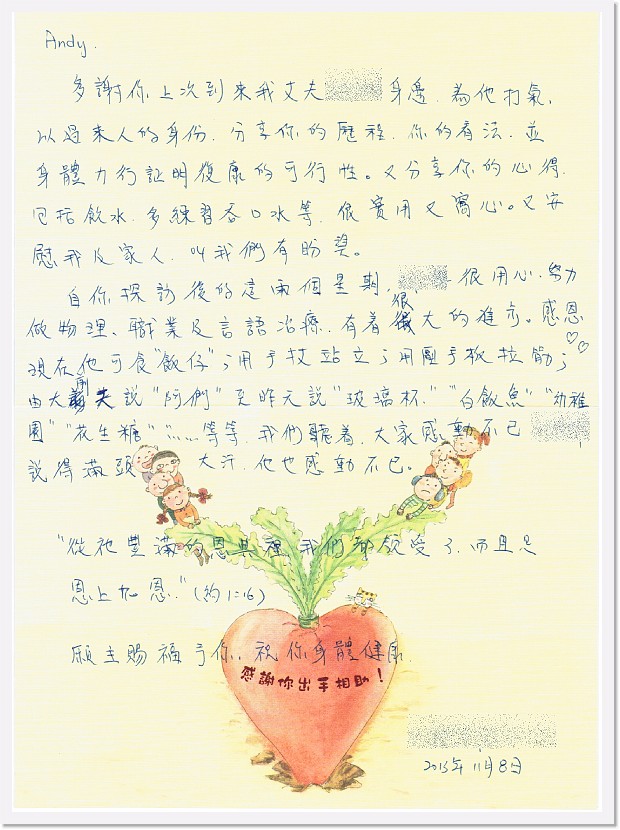 Andy.
多謝你上次到來我丈夫 身邊,為他打氣,
以過來人的身份,分享你的歷程,你的看法,並
身體力行証明復康的可行性。又分享你的心得,
包括飲水,多練習吞口水等,很實用又窩心。又安
慰我及家人,叫我們有盼望。
自你探訪後的這兩個星期, 很用心,努力
做物理、職業及言語治療,有着很大的進步。感恩
現在他可食"飯仔";用手杖站立;用壓手板拉筋;
由大剛夫說"阿們"至昨天說"玻璃杯""白飯魚""幼稚
園""花生糖"……等等,我們聽着,大家感動不已
說得滿頭大汗,他也感動不已。
"從祂豐滿的恩典裡,我們都領受了,而且是
恩上加恩。"(約1:16)
願主賜福予你,祝你身體健康.
感謝你出手相助!
2015年11月8日